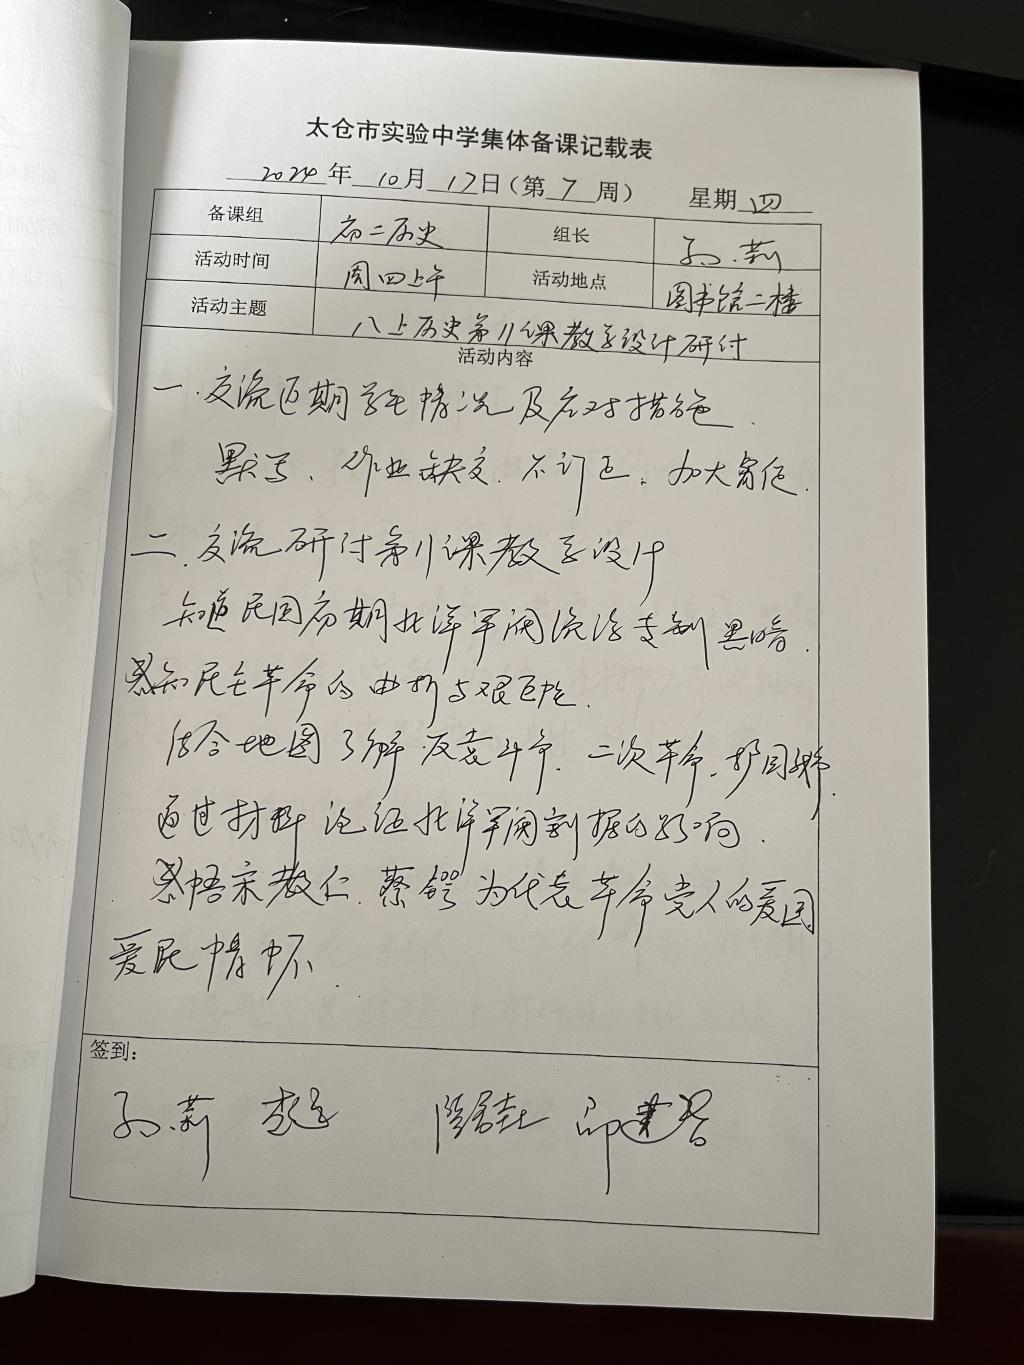 太仓市实验中学集体备课记载表
2024年10月17日(第7周) 星期四
备课组 初二历史 组长 孙莉
活动时间 周四上午 活动地点 图书馆二楼
活动主题 八上历史第11课教学设计研讨
活动内容
一.交流近期学生情况及应对措施.
默写、作业缺交.不订正。加大督促.
二.交流研讨第11课教学设计
知道民国初期北洋军阀统治专制黑暗.
感知民主革命的曲折与艰巨性.
结合地图了解反袁斗争.二次革命.护国战争.
通过材料论证北洋军阀割据的影响.
感悟宋教仁.蔡锷为代表革命党人的爱国
爱民情怀.
签到:
孙莉